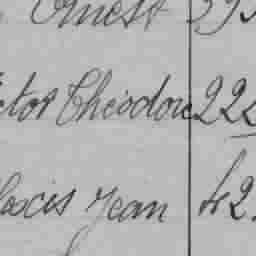 Ernest 39
ctor Theodore 22
lexis Jean 42